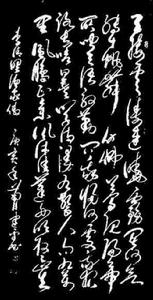 天接云涛连晓雾星河欲
转千帆舞仿佛梦魂归帝所
闻天语殷勤问我归何处我报
路长嗟日暮学诗谩有惊人句九万
里风鹏正举风休住蓬舟吹取三山
去李清照渔家傲
庚寅